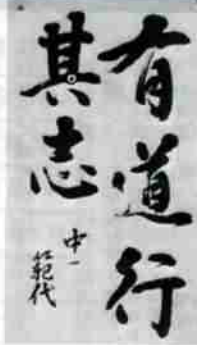 有道行
其志
中一
範代